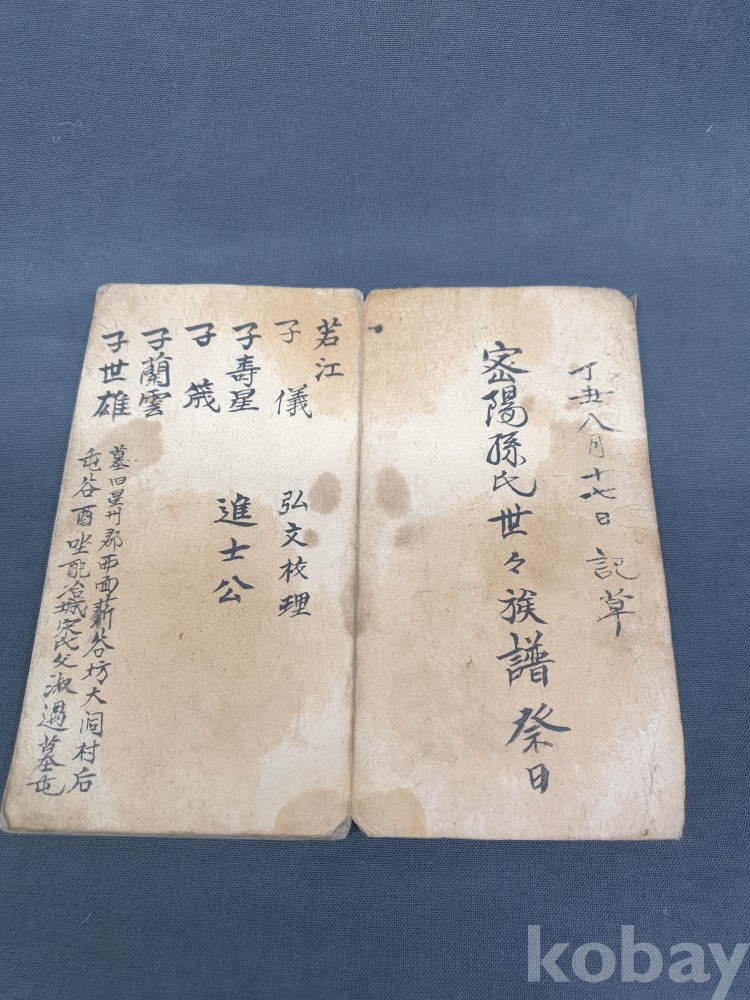 丁丑八月十七日 記草
密陽孫氏世々族譜 祭日
若江
子 儀 弘文校理
子壽星 進士公
子 箴
子蘭雲
子世雄
墓旧星州郡西面薪谷坊大洞村后
屯谷酉坐配冶城宋氏父淑遇墓屯
kobay